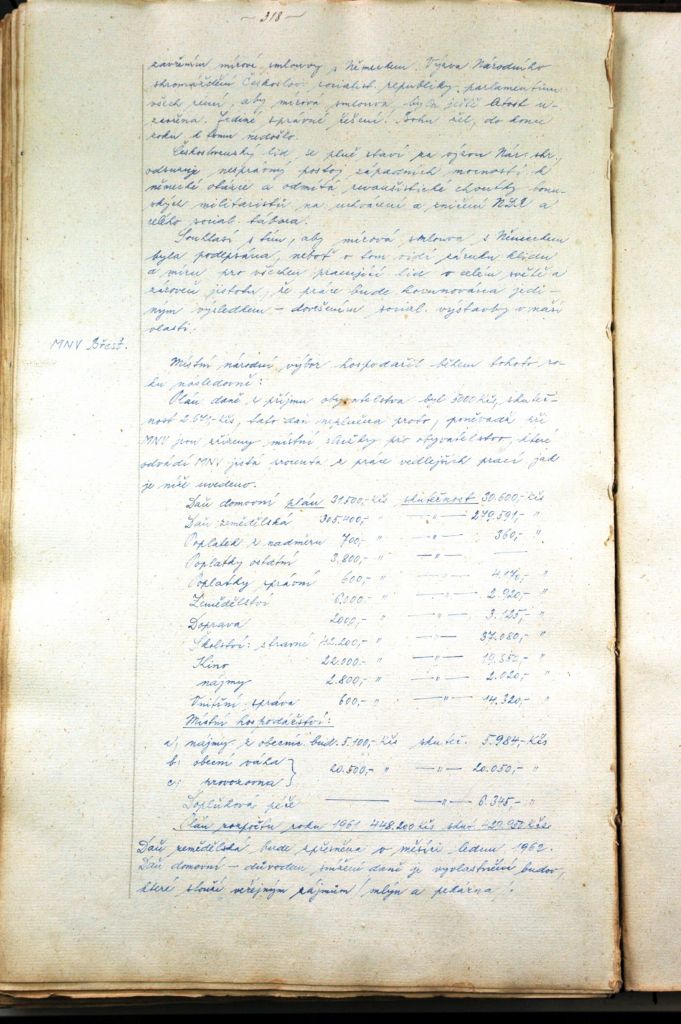 – 318 –
zavřením mírové smlouvy s Německem. Výzva Národního
shromáždění Českoslov. socialist. republiky parlamentům
všech zemí, aby mírová smlouva byla ještě letos u-
zavřena. Jediné správné řešení. Bohu žel, do konce
roku k tomu nedošlo.
Československý lid, se plně staví za výzvu Nár. shr.,
odsuzuje nesprávný postoj západních mocností k
německé otázce a odmítá revanšistické choutky bonn-
ských militaristů na uchvácení a zničení NDR a
celého social. tábora.
Souhlasí s tím, aby mírová smlouva s Německem
byla podepsána, neboť v tom vidí záruku klidu
a míru pro všechen pracující lid v celém světě a
zároveň jistotu, že práce bude korunována jedi-
ným výsledkem – dovršením social. výstavby v naší
vlasti.
MNV Břest.
Místní národní výbor hospodařil během tohoto ro-
ku následovně:
Plán daně z příjmu obyvatelstva byl 3000 Kčs, skuteč-
nost 2.671,- Kčs, tato daň neplněna proto, poněvadž při
MNV jsou zřízeny místní služby pro obyvatelstvo, které
odvádí MNV jistá procenta z práce vedlejších prací jak
je níže uvedeno.
Daň domovní plán 31.500,- Kčs skutečnost 30.600,- Kčs
Daň zemědělská 305.400,- " —"— 279.591,- "
Poplatek z nadměru 700,- " —"— 360,- "
Poplatky ostatní 3.800,- " —"— —
Poplatky správní 600,- " —"— 4.176,- "
Zemědělství 6.000,- " —"— 2.920,- "
Doprava 2000,- " —"— 3.125,- "
Školství: stravné 42.200,- " —"— 37.080,- "
Kino 22.000,- " —"— 19.550,- "
nájmy 2.800,- " —"— 2.020,- "
Vnitřní správa 600,- " —"— 14.320,- "
Místní hospodářství:
a, nájmy z obecních bud. 5.100,- Kčs skuteč. 5.984,- Kčs
b, obecní váha
c, provozovna } 20.500,- " —"— 20.050,- "
Doplňková péče —— —"— 6.345,- "
Plán rozpočtu roku 1961 448.200 Kčs skut. 429.957 Kčs
Daň zemědělská bude zpřesněna v měsíci lednu 1962.
Daň domovní – důvodem snížení daně je vyvlastnění budov,
které slouží veřejným zájmům / mlýn a pekárna /.